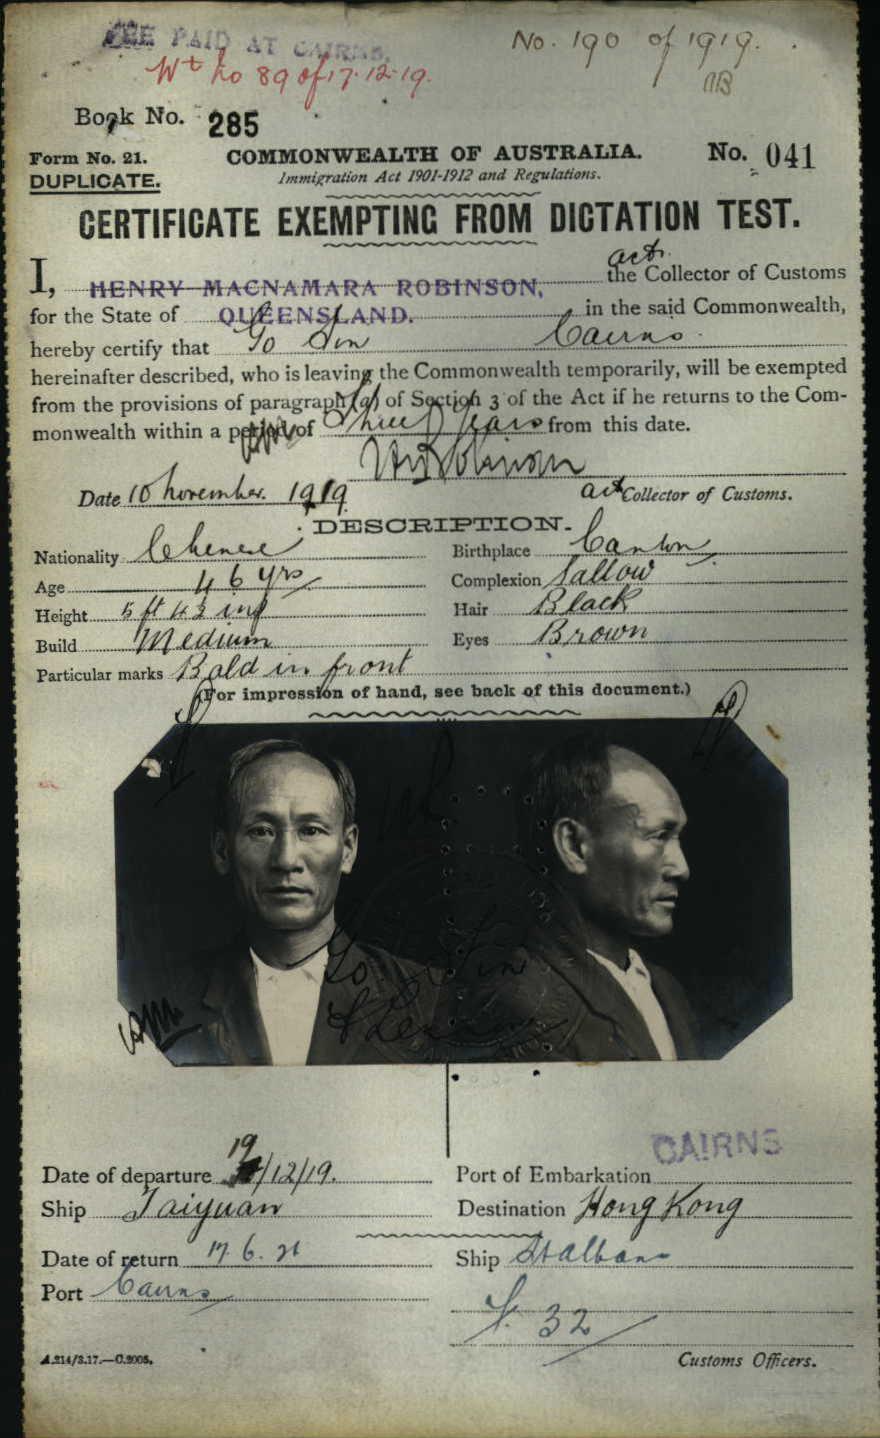 FEE PAID AT CAIRNS.
No. 190 of 1919.
Wt no 89 of 17.12.19.
Book No. 285
Form No. 21. COMMONWEALTH OF AUSTRALIA. No. 041
DUPLICATE. Immigration Act 1901-1912 and Regulations.
CERTIFICATE EXEMPTING FROM DICTATION TEST.
act.
I, HENRY MACNAMARA ROBINSON, the Collector of Customs
for the State of QUEENSLAND. in the said Commonwealth,
hereby certify that Go Sin Cairns
hereinafter described, who is leaving the Commonwealth temporarily, will be exempted
from the provisions of paragraph (a) of Section 3 of the Act if he returns to the Com-
monwealth within a period of Three Years from this date.
HMRobinson
Date 10 November. 1919 act Collector of Customs.
DESCRIPTION.
Nationality Chinese Birthplace Canton
Age 46 yrs Complexion Sallow
Height 5 ft 4 3/4 ins Hair Black
Build Medium Eyes Brown
Particular marks Bald in front
(For impression of hand, see back of this document.)
Go Sin
CAIRNS
Date of departure 19/12/19. Port of Embarkation
Ship Taiyuan Destination Hong Kong
Date of return 17.6.21 Ship St Albans
Port Cairns
F. 32
A.214/3.17.—C.2005. Customs Officers.